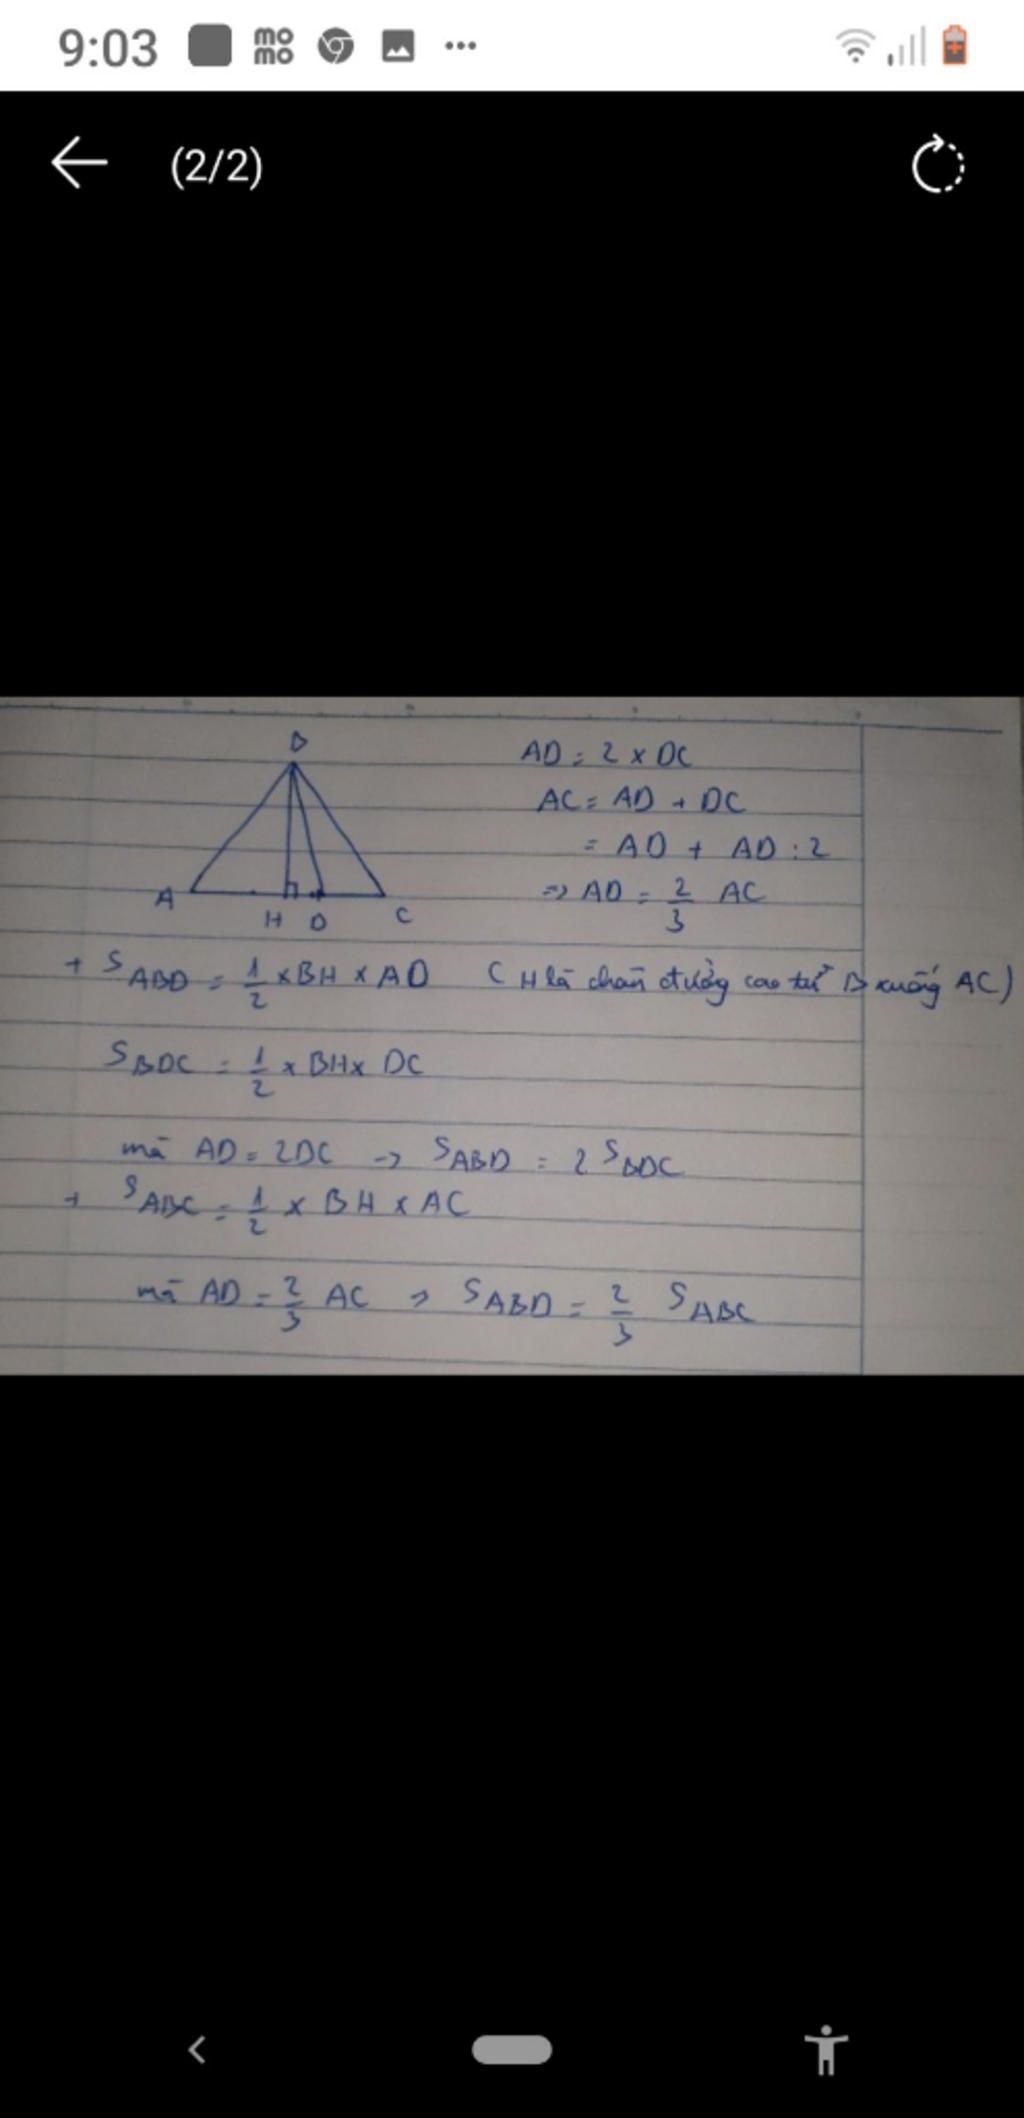 9:03 mo mo ...
(2/2)
B
A H D C
AD = 2 x DC
AC = AD + DC
= AD + AD : 2
=> AD = 2/3 AC
+ S ABD = 1/2 x BH x AD ( H là chân đường cao từ B xuống AC)
S BDC = 1/2 x BH x DC
mà AD = 2DC -> S ABD = 2 S BDC
+ S ABC = 1/2 x BH x AC
mà AD = 2/3 AC -> S ABD = 2/3 S ABC